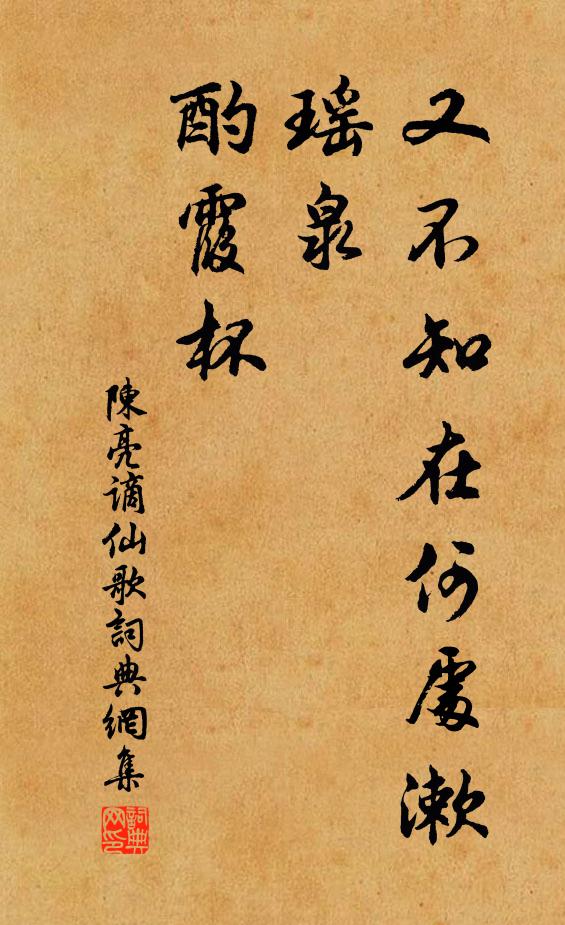 又不知在何處漱
瑤泉
酌霞杯
陳亮謫仙歌詞典網集
詞典网印